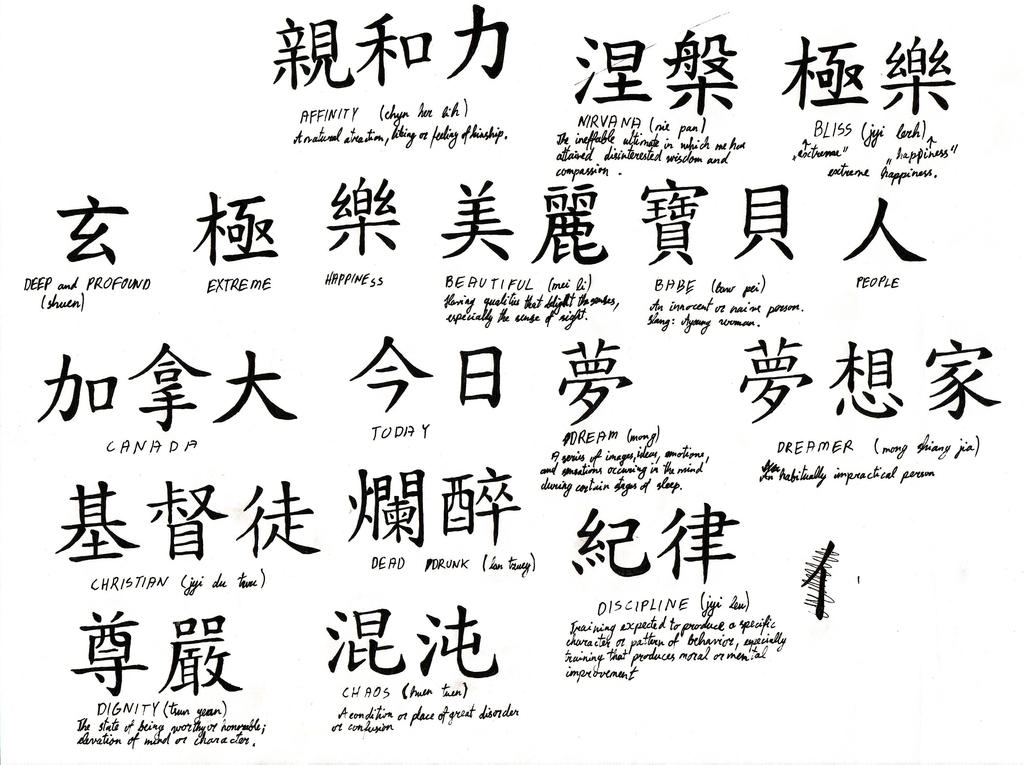 親和力
AFFINITY (chyn her lih)
A natural atraction, liking or feeling of kinship.
涅槃
NIRVANA (nie pan)
The ineffable ultimate in which one has
attained disinterested wisdom and
compassion.
極樂
BLISS (jyi lerh)
"extreme" "happiness"
extreme happiness.
玄
DEEP and PROFOUND
(shuen)
極
EXTREME
樂
HAPPINESS
美麗
BEAUTIFUL (mei li)
Having qualities that delight the senses,
especially the sense of sight.
寶貝
BABE (baw pei)
An innocent or naive person.
Slang: A young woman.
人
PEOPLE
加拿大
CANADA
今日
TODAY
夢
DREAM (mong)
A series of images, ideas, emotions,
and sensations occuring in the mind
during certain stages of sleep.
夢想家
DREAMER (mong shiang jia)
An habitually impractical person
基督徒
CHRISTIAN (jyi du twu)
爛醉
DEAD DRUNK (lan tzuey)
紀律
DISCIPLINE (jyi leu)
Training expected to produce a specific
character or pattern of behavior, especially
training that produces moral or mental
improvement
尊嚴
DIGNITY (tsun yean)
The state of being worthy or honorable;
elevation of mind or character.
混沌
CHAOS (huen tuen)
A condition or place of great disorder
or confusion